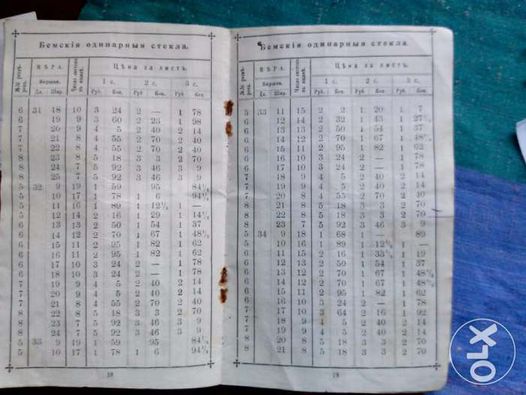 Бемскія одинарныя стекла.
МѢРА.
Цѣна за листъ:
Вершки.
1 с. 2 с. 3 с.
Дл. Шир. Руб. Коп. Руб. Коп. Руб. Коп.
6 31 18 10 3 24 2 — 1 78
6 19 9 3 60 2 23 1 98
7 20 9 4 5 2 40 2 14
7 21 8 4 55 2 70 2 40
7 22 8 4 55 2 70 2 40
8 23 8 5 18 3 3 2 70
8 24 7 5 92 3 46 3 9
8 25 7 5 92 3 46 3 9
5 32 9 19 1 59 95
5 10 17 1 78 1 6
5 11 16 1 89 1 1
5 12 14 2 16 1 29 1
6 13 13 2 50 1 54 1 37
6 14 12 2 70 1 67 1
6 15 11 2 95 1 82 1 62
6 16 11 2 95 1 82 1 62
6 17 10 3 24 2 — 1 78
6 18 10 3 24 2 — 1 78
7 19 9 4 5 2 40 2 14
7 20 9 4 5 2 40 2 14
7 21 8 4 55 2 70 2 40
8 22 8 5 18 3 3 2 70
8 23 7 5 92 3 46 3 9
8 24 7 5 92 3 46 3 9
5 33 9 19 1 59 95
5 10 17 1 78 1 6
Бемскія одинарныя стекла.
МѢРА.
Цѣна за листъ:
Вершки.
1 с. 2 с. 3 с.
Дл. Шир. Руб. Коп. Руб. Коп. Руб. Коп.
5 33 11 15 2 2 1 20 1 7
6 12 14 2 32 1 43 1
6 13 13 2 50 1 54 1 37
6 14 12 2 70 1 67 1
6 15 11 2 95 1 82 1 62
6 16 10 3 24 2 — 1 78
6 17 10 3 24 2 — 1 78
7 18 9 4 5 2 40 2 14
7 19 9 4 5 2 40 2 14
7 20 8 4 55 2 70 2
8 21 8 5 18 3 3 2 70
8 22 8 5 18 3 3 2
8 23 7 5 92 3 46 3 9
5 34 9 18 1 68 1 — 89
5 10 16 1 89 1
5 11 15 2 16 1
6 12 13 2 50 1 54 1 37
6 13 12 2 70 1 67 1
6 14 12 2 70 1 67 1
6 15 11 2 95 1 82 1 62
6 16 10 3 24 2 — 1 78
7 17 10 3 64 2 16 1 92
7 18 9 4 5 2 40 2 14
7 19 9 4 5 2 40 2 14
8 20 8 5 18 3 3 2 70
8 21 8 5 18 3 3 2 70
OLX